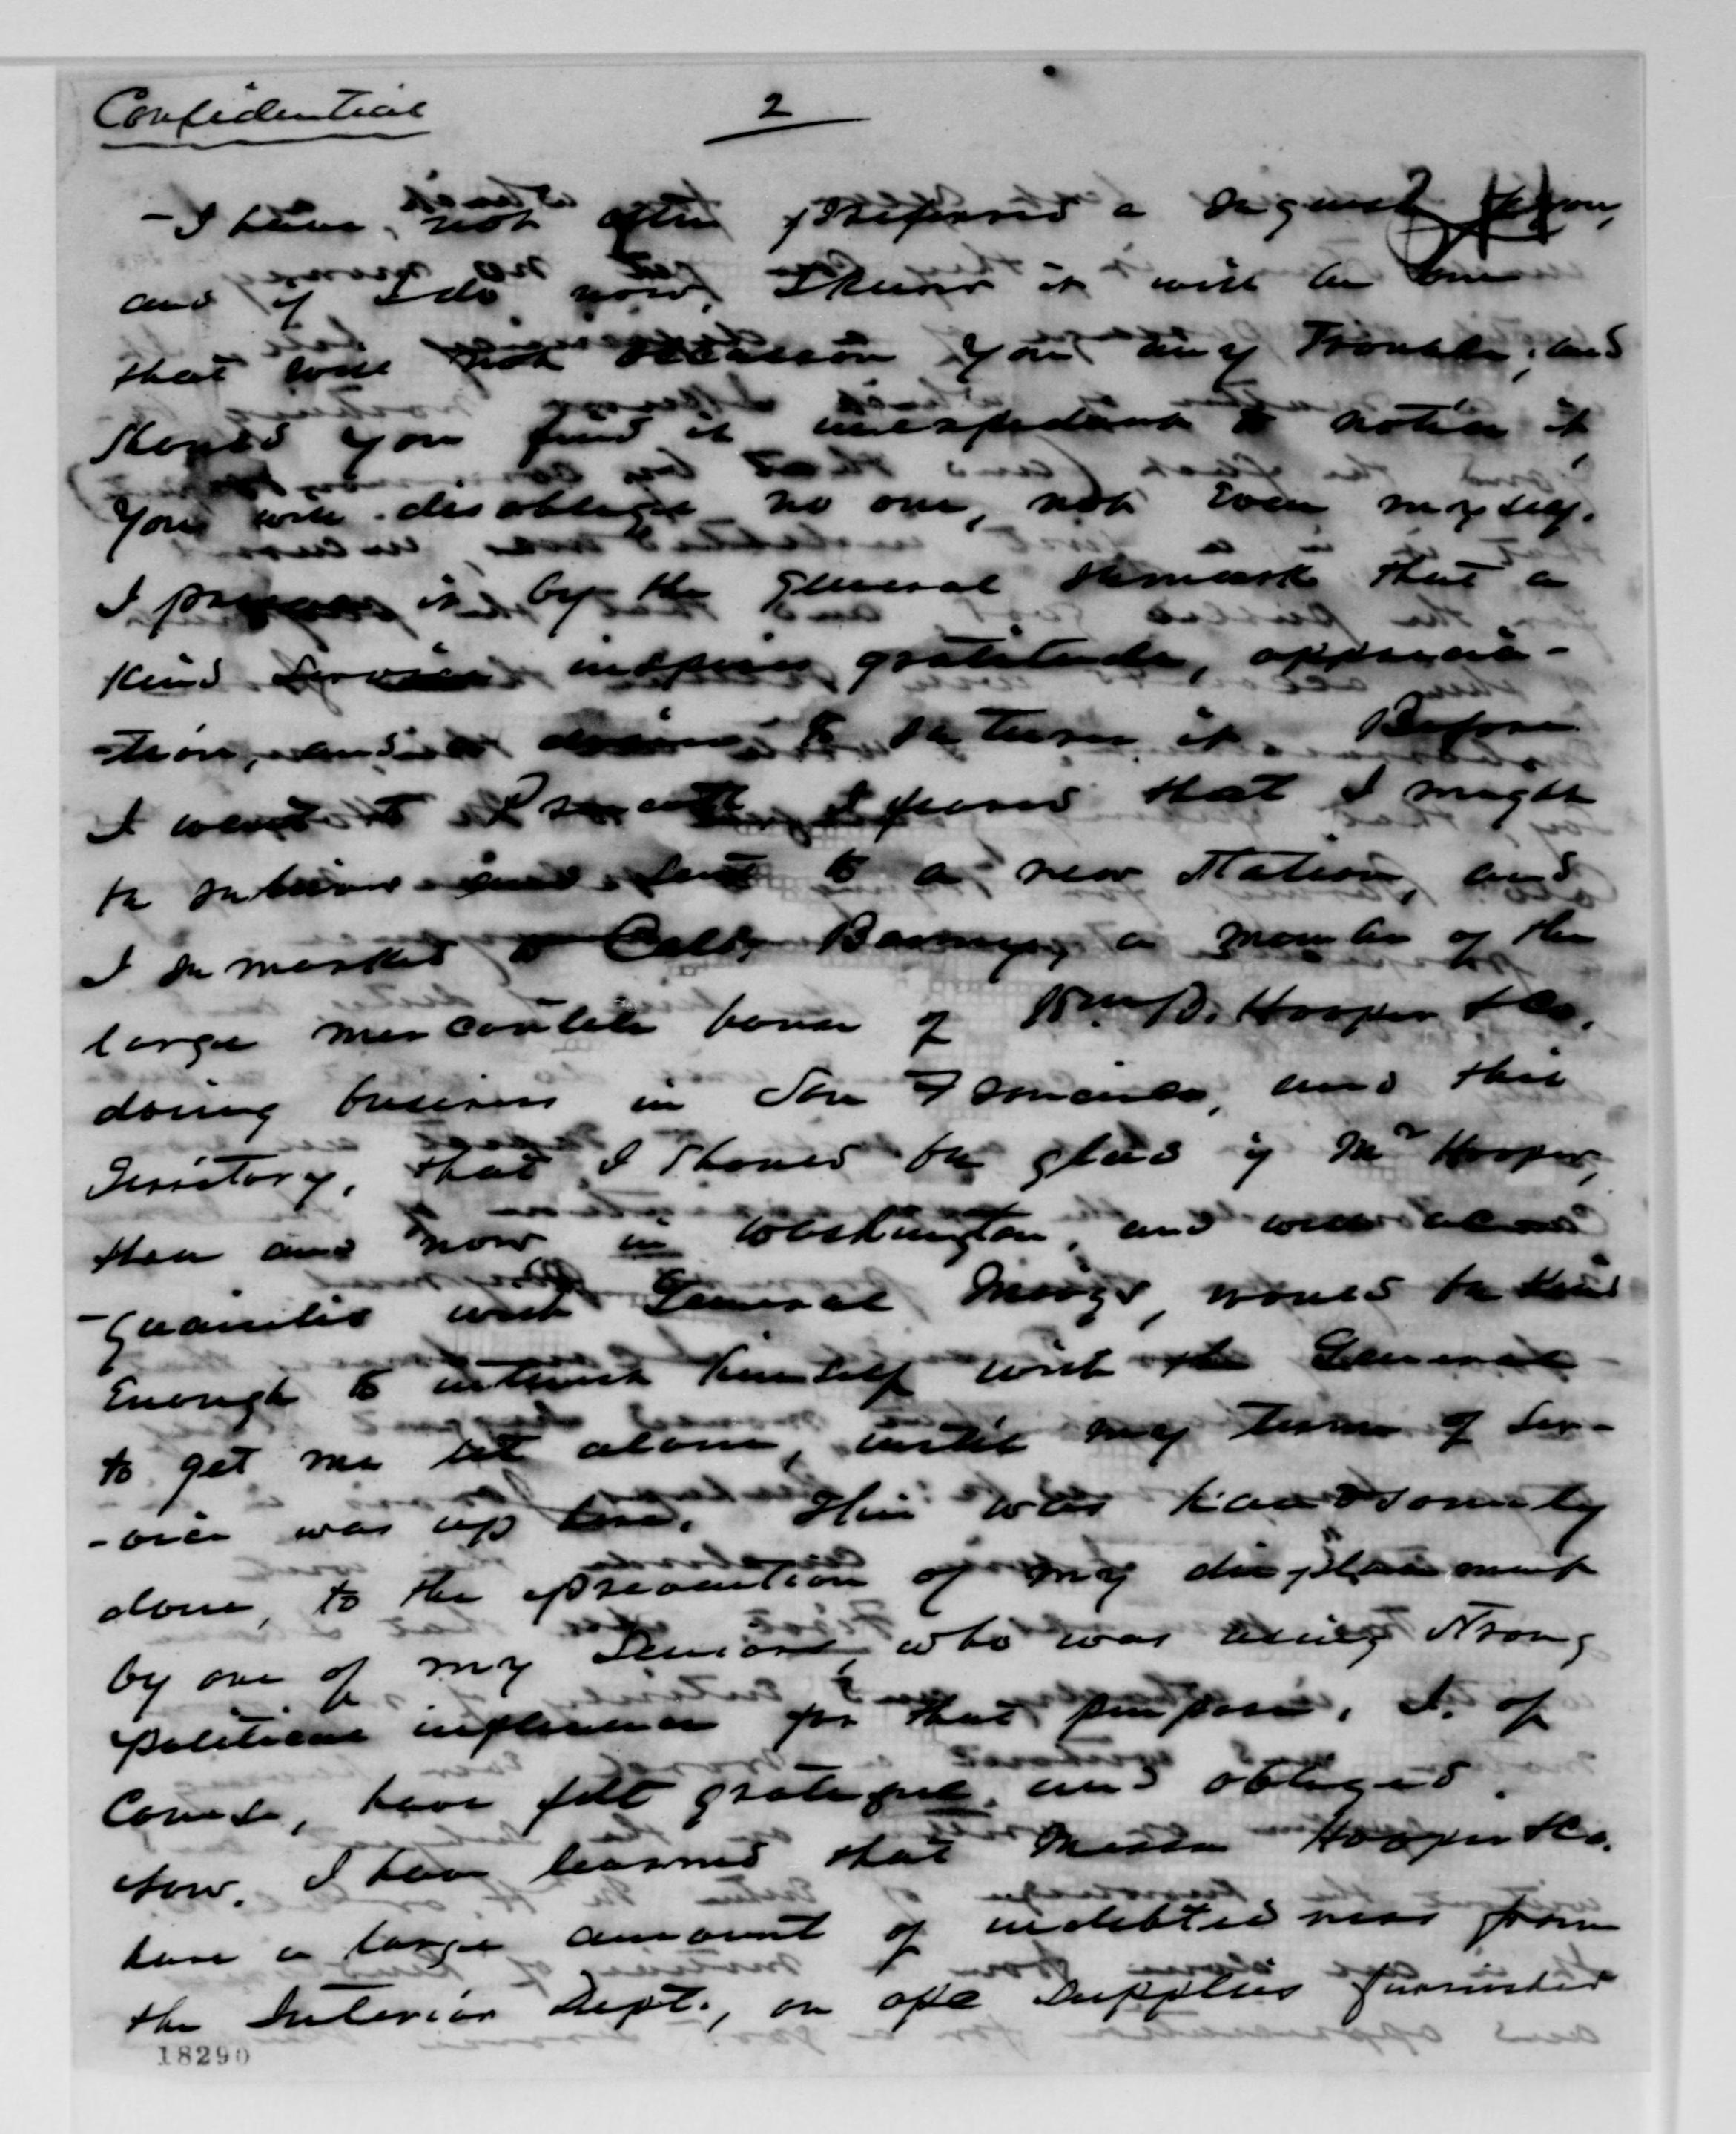 Confidential
2
- I have not often preferred a request to you,
and if I do now, I know it will be one
that will not occasion you any trouble; and
should you find it inexpedient to notice it
you will disoblige no one, not even myself.
I preface it by the general remark that a
kind service inspires gratitude, apprecia-
-tion, and a desire to return it. Before
I went to Prescott, I feared that I might
be relieved and sent to a new station, and
I remarked to Barney, a member of the
large mercantile house of Wm. B. Hooper & Co.
doing business in San Francisco, and this
Territory, that I should be glad if Mr Hooper,
then and now in Washington, and well ac-
-quainted with General Meigs, would be kind
enough to interest himself with the General
to get me let alone, until my term of ser-
-vice was up here. This was handsomely
done, to the prevention of my displacement
by one of my Seniors, who was using strong
political influence for that purpose. I, of
course, have felt grateful and obliged.
Now, I have learned that Messrs Hooper & Co.
have a large amount of indebtedness from
the Interior Dept., on a/c supplies furnished
18290